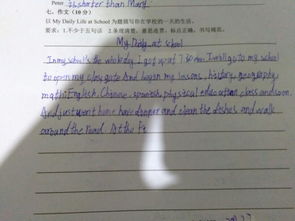 Peter is shorter than Mary.
七、作文（10分）
以 My Daily Life at School 为题描写你在学校的一天的生活。
要求：1.不少于五句话 2.条理清楚，意思连贯，标点正确，书写规范。
My Daily at school
In my school's the I got up at 7 to my school
to open my class gate And began my lessons, history, geography
math English, Chinese, spanish, physical education class and soon.
And just went home have dinner and clean the dishes and walk
around the road. At the